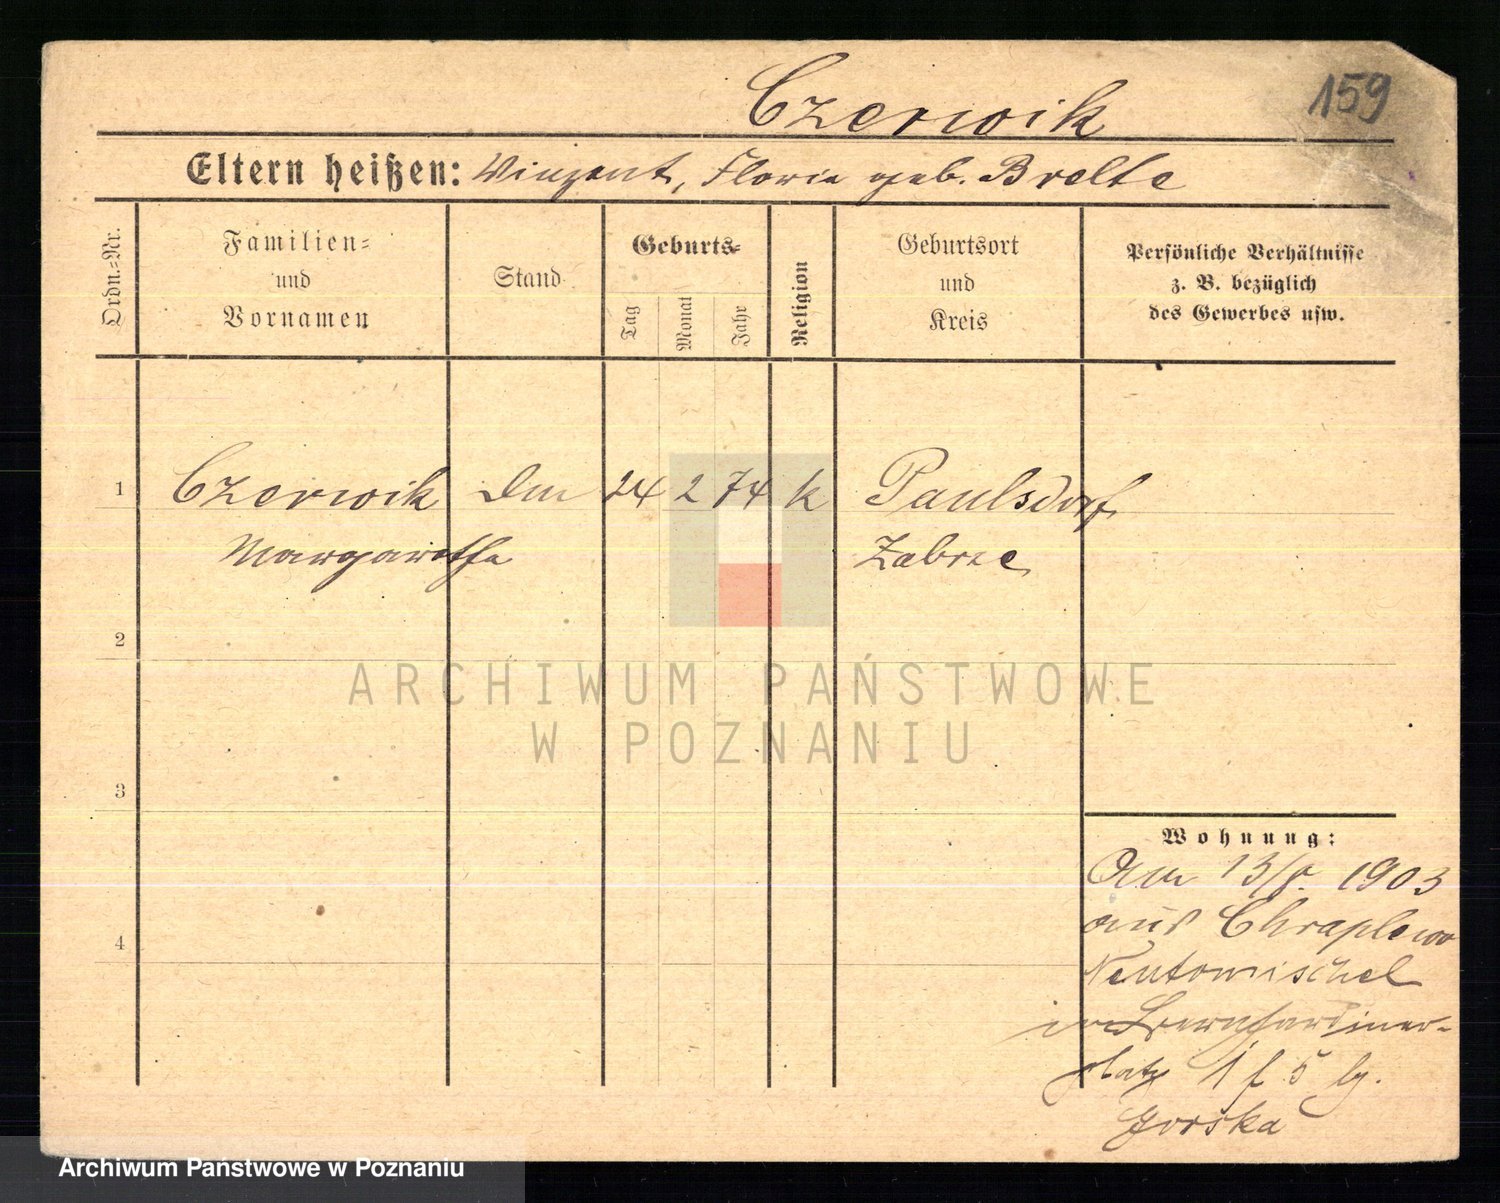 159
Czerwik
Eltern heißen: Vinzent, Floria geb. Brelte
Ordn.-Nr.
Familien- und Vornamen
Stand
Geburts-
Tag
Monat
Jahr
Religion
Geburtsort und Kreis
Persönliche Verhältnisse
z. B. bezüglich
des Gewerbes usw.
1 Czerwik 24 2 74 k Paulsdorf
Margarethe Zabrze
2
3
4
Wohnung:
Am 13/8. 1903
aus Chraplewo
Neutomischel
in Bernhardiner-
platz 1 f 5 bg.
Gorska
ARCHIWUM PAŃSTWOWE
W POZNANIU
Archiwum Państwowe w Poznaniu